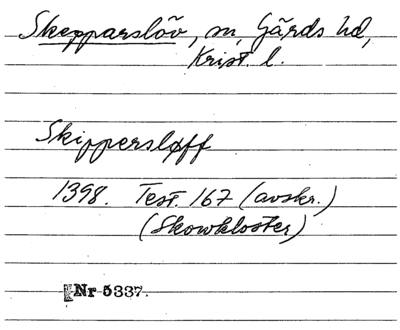 Skepparslöv, sn, Gärds hd,
Krist. l.
Skippersløff
1398. Test. 167 (avskr.)
(Skowkloster)
Nr 5337.